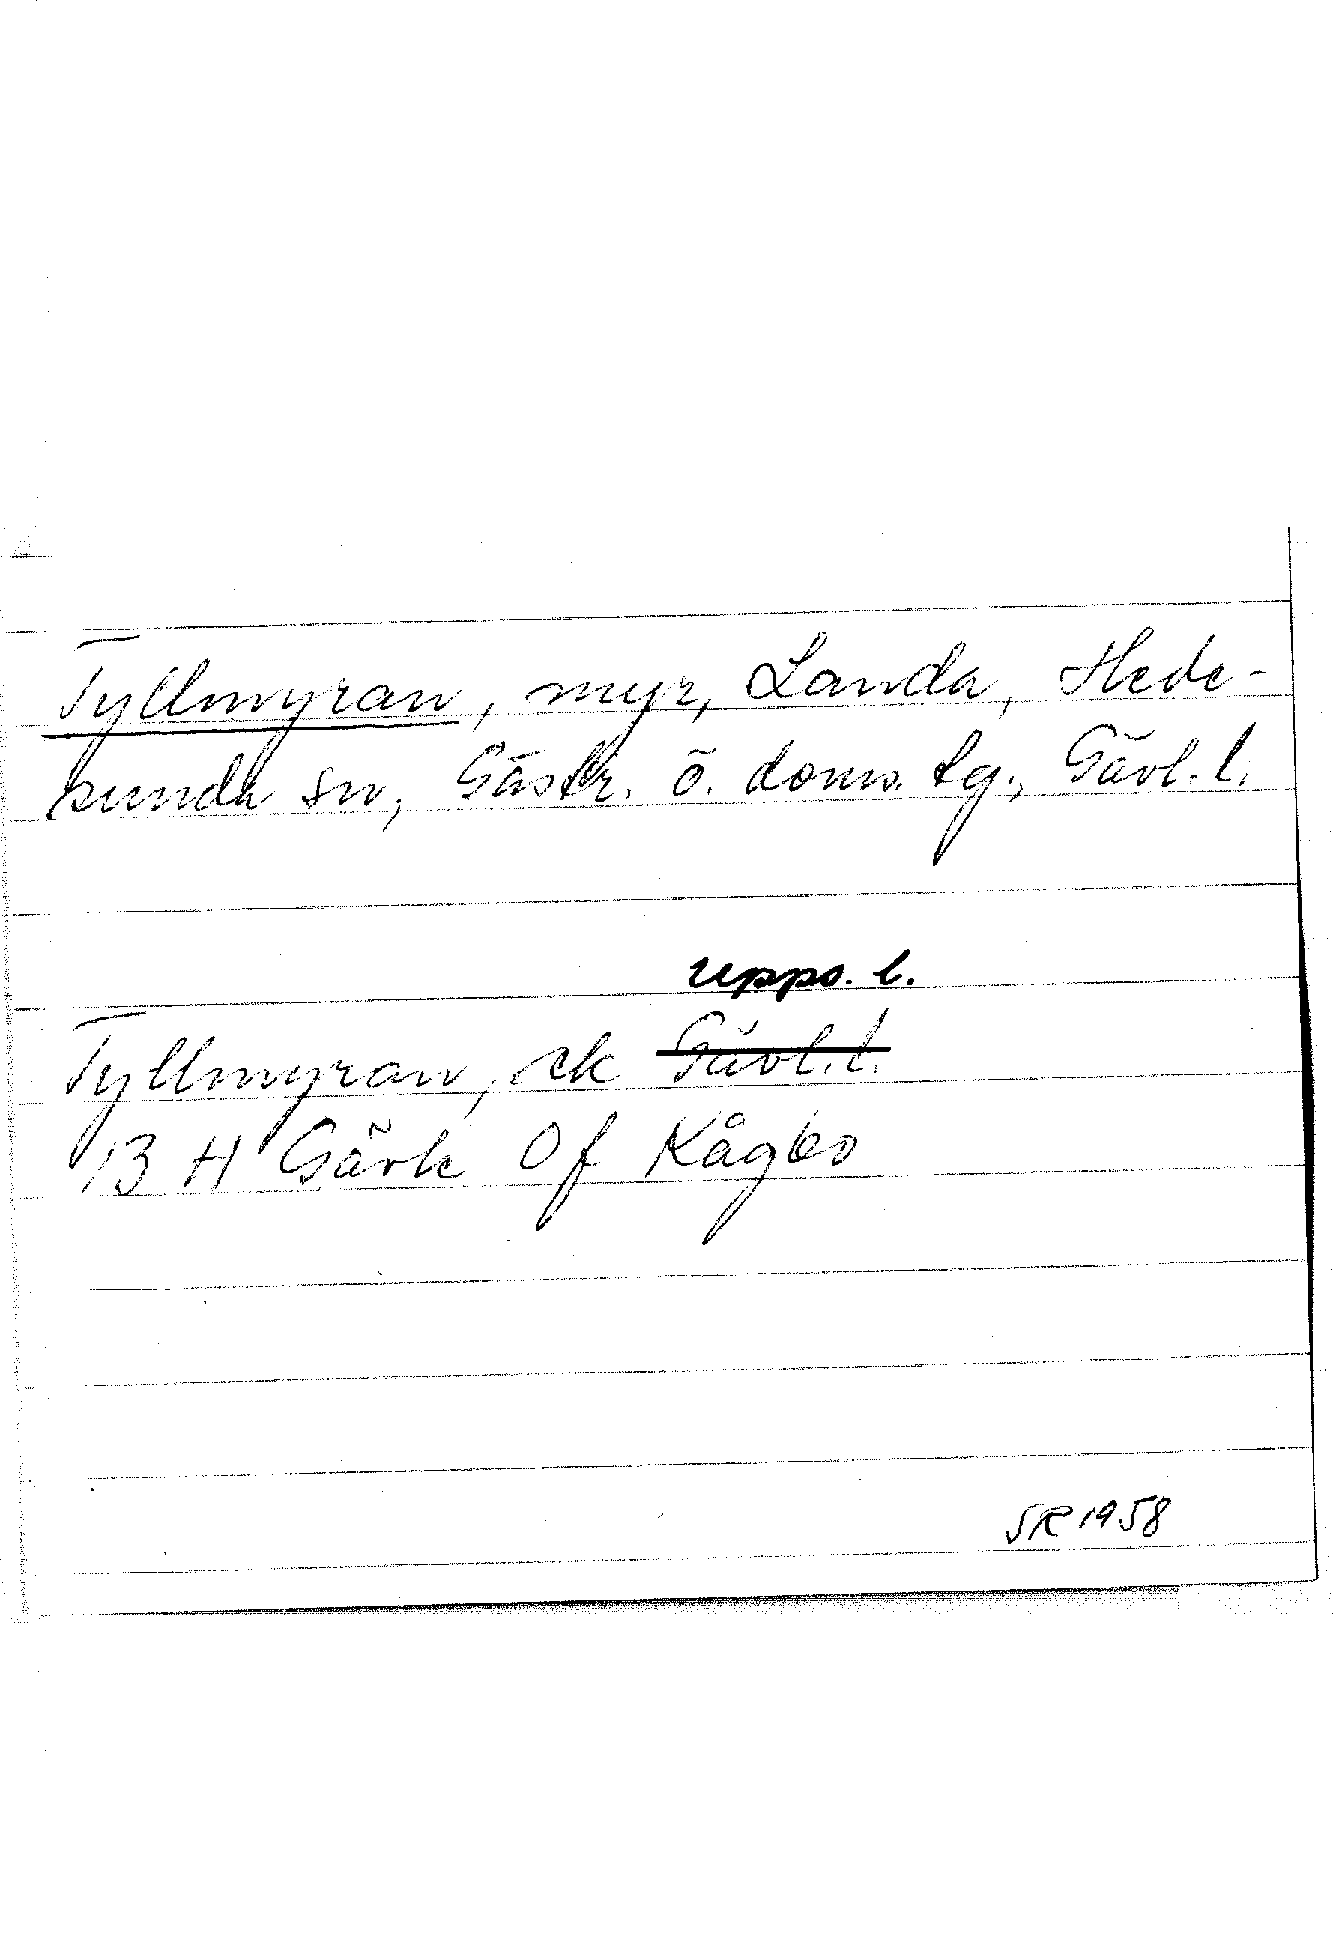 Tyllmyran, myr, Landa, Hede-
sunda sn, Gästr. ö. doms. tg., Gävl. l.
Upps. l.
Tyllmyran, ek Gävl. l.
13 H Gävle 0f Kågbo
SR 1958